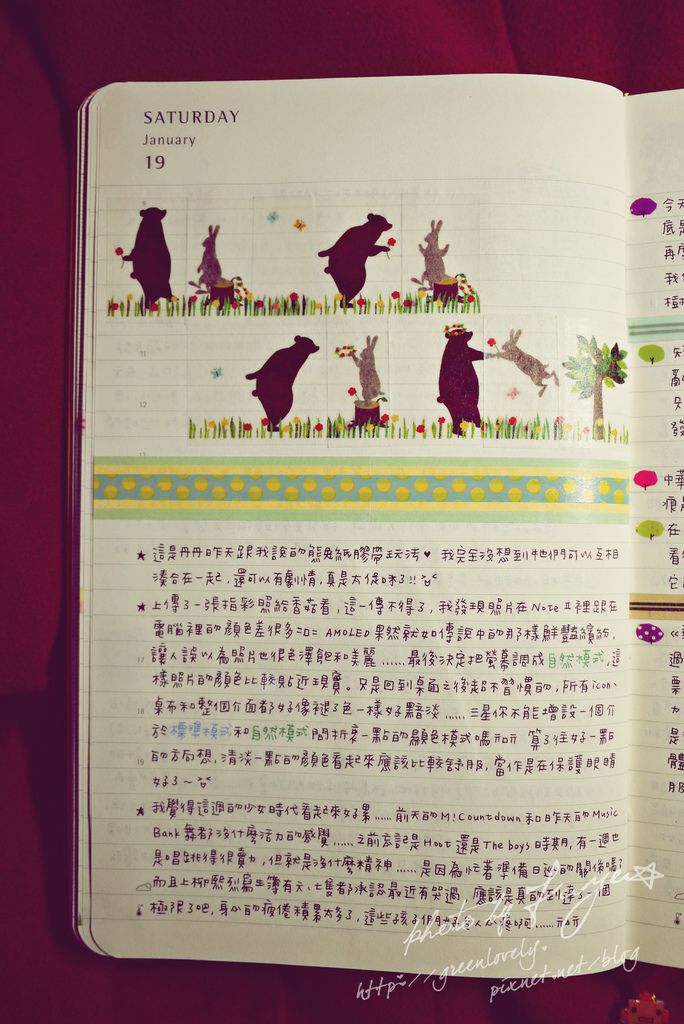 SATURDAY
January
19
11
12
17
18
19
★ 這是丹丹昨天跟我說的熊兔紙膠帶玩法♥ 我完全沒想到牠們可以互相
湊合在一起,還可以有劇情,真是太俗咪了!!
★ 上傳了一張指彩照給香菇看,這一傳不得了,我發現照片在NoteⅡ裡跟在
電腦裡的顏色差很多 AMOLED果然就如傳說中的那樣鮮豔繽紛,
讓人誤以為照片也很色澤飽和美麗......最後決定把螢幕調成自然模式,這
樣照片的顏色比較貼近現實。只是回到桌面之後超不習慣的,所有icon、
桌布和整個介面都好像褪了色一樣好黯淡......三星你不能增設一個介
於標準模式和自然模式間折衷一點的顯色模式嗎 算了往好一點
的方向想,清淡一點的顏色看起來應該比較舒服,當作是在保護眼睛
好了~
★ 我覺得這週的少女時代看起來好累......前天的M!Countdown和昨天的Music
Bank舞都沒什麼活力的感覺......之前忘記是Hoot還是The boys時期,有一週也
是唱跳得很賣力,但就是沒什麼精神......是因為忙著準備日週的關係嗎?
而且上柳熙烈寫生簿有六、七隻都承認最近有哭過,應該是真的到達了一個
極限了吧,身心的疲倦積累太多了,這些孩子們好令人心疼啊......
今天
底是
再麼
我
樹
發
中華
痕
在
看
它
過
栗
力
是
體
服
photo by
http://greenlovely.
pixnet.net/blog